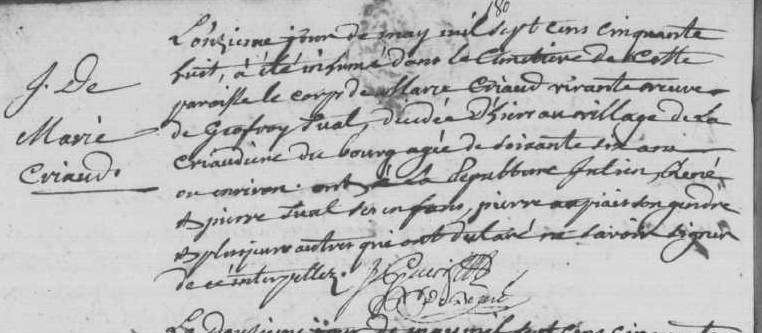 180
J. De
Marie
Criaud.
L'onzieme jour de may mil sept cens cinquante
huit, a été inhumé dans le Cimetiere de Cette
paroisse le corps de Marie Criaud vivante veuve
de Geofroy Tual, decedée d'hier au village de La
Criaudiere du bourg agée de soixante six ans
ou environ. ont été a la sepulture Julien, René
& pierre Tual ses enfans, pierre son gendre
& plusieurs autres qui ont declaré ne savoir signer
de ce interpellez.
Le douzieme jour de may mil sept cens cinquante